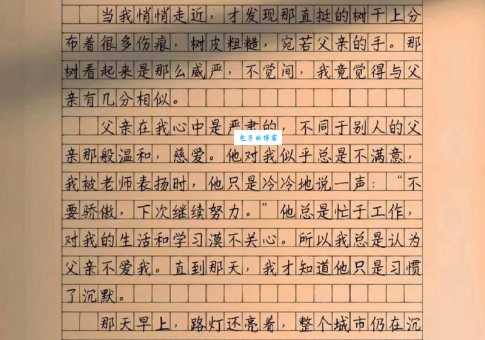 当我悄悄走近，才发现那直挺的树干上分
布着很多伤痕，树皮粗糙，宛若父亲的手。那
树看起来是那么威严，不觉间，我竟觉得与父
亲有几分相似。
父亲在我心中是严肃的，不同于别人的父
亲那般温和，慈爱。他对我似乎总是不满意，
我被老师表扬时，他只是冷冷地说一声：“不
要骄傲，下次继续努力。”他总是忙于工作，
对我的生活和学习漠不关心。所以我总是认为
父亲不爱我。直到那天，我才知道他只是习惯
了沉默。
那天早上，路灯还亮着，整个城市仍在沉